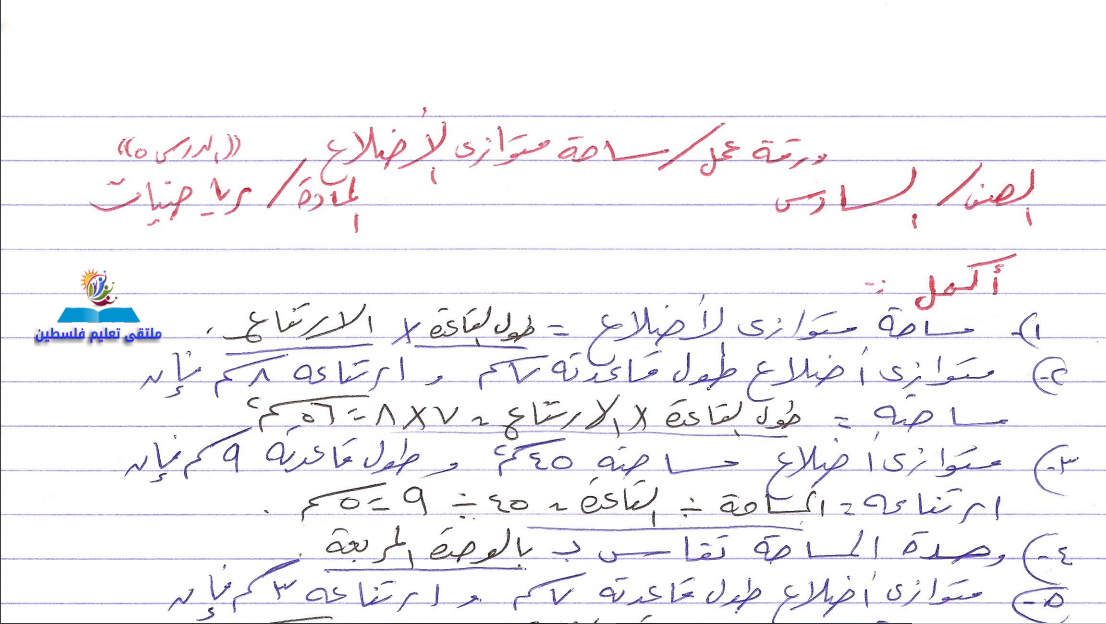 ورقة عمل / مساحة متوازي الأضلاع ((الدرس ٥))
الصف / السادس المادة / رياضيات
أكمل :-
ملتقى تعليم فلسطين
١-) مساحة متوازي الأضلاع = طول القاعدة × الارتفاع .
٢-) متوازي أضلاع طول قاعدته ٧سم و ارتفاعه ٨سم فإن
مساحته = طول القاعدة × الارتفاع = ٧×٨ = ٥٦سم٢
٣-) متوازي أضلاع مساحته ٤٥سم٢ و طول قاعدته ٩سم فإن
ارتفاعه = المساحة ÷ القاعدة = ٤٥ ÷ ٩ = ٥سم .
٤-) وحدة المساحة تقاس بـ بالوحدة المربعة .
٥-) متوازي أضلاع طول قاعدته ٧سم و ارتفاعه ٣سم فإن